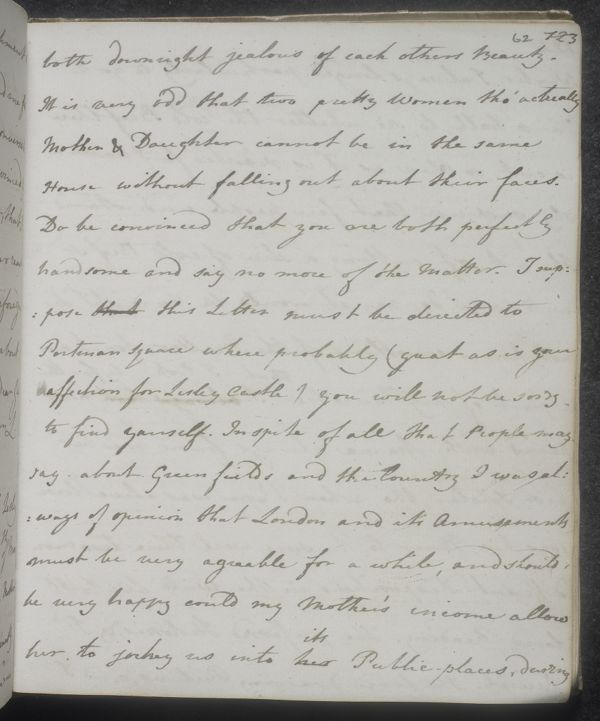 62 123
both downright jealous of each others Beauty.
It is very odd that two pretty Women tho' actually
Mother & Daughter cannot be in the same
House without falling out about their faces.
Do be convinced that you are both perfectly
handsome and say no more of the Matter. I sup:
:pose this Letter must be directed to
Portman Square where probably (great as is your
affection for Lesley Castle) you will not be sorry
to find yourself. Inspite of all that People may
say about Green fields and the Country I was al:
:ways of opinion that London and its Amusements
must be very agreable for a while, and should
be very happy could my Mother's income allow
her to jockey us into its Public-places, during